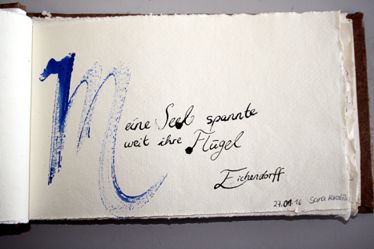 Meine Seele spannte
weit ihre Flügel
Eichendorff
Sara